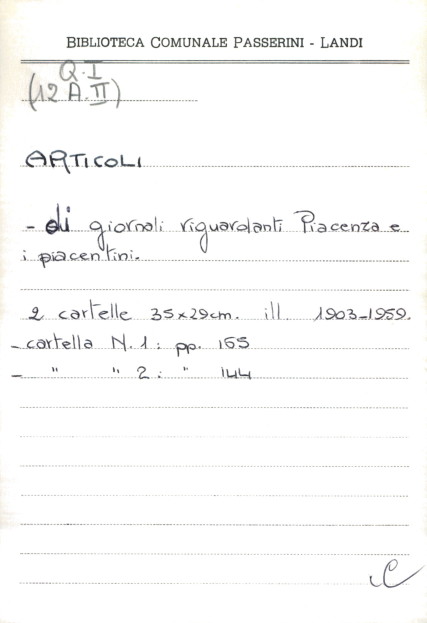 BIBLIOTECA COMUNALE PASSERINI - LANDI
Q.I
(12 A.II)
ARTICOLI
- di giornali riguardanti Piacenza e
i piacentini.
2 cartelle 35x29cm. ill. 1903-1959.
- cartella N. 1: pp. 155
- " " 2: " 144